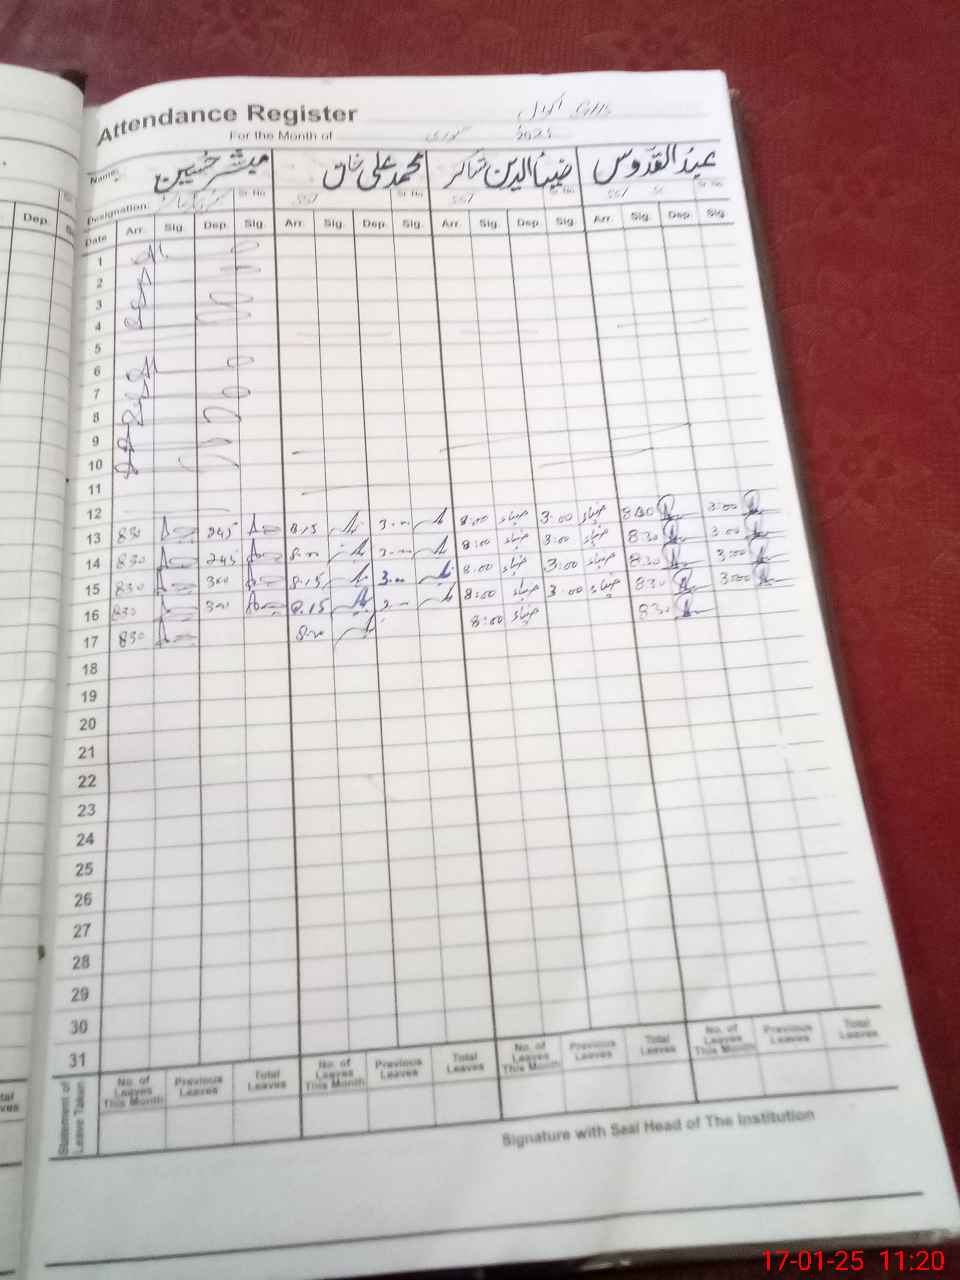 Attendance Register
For the Month of 2025
Name: مبشر حسین محمد علی ضیاالدین شاکر عبدالقدوس
Designation: Sr No SST Sr No SST Sr No SST Sr No
Date Arr. Sig. Dep. Sig. Arr. Sig. Dep. Sig. Arr. Sig. Dep. Sig. Arr. Sig. Dep. Sig.
1
2
3
4
5
6
7
8
9
10
11
12
13 830 245 8.15 3.00 8:00 ضیاء 3:00 ضیاء 830 3:00
14 830 245 8.00 3.00 8:00 ضیاء 3:00 ضیاء 830 3:00
15 830 300 8.15 3.00 8:00 ضیاء 3:00 ضیاء 830 3:00
16 830 300 8.15 3.00 8:00 ضیاء 3:00 ضیاء 830 3:00
17 830 8.00 8:00 ضیاء 830
18
19
20
21
22
23
24
25
26
27
28
29
30
31
Statement of Leave Taken
No. of Leaves This Month Previous Leaves Total Leaves No. of Leaves This Month Previous Leaves Total Leaves No. of Leaves This Month Previous Leaves Total Leaves No. of Leaves This Month Previous Leaves Total Leaves
Signature with Seal Head of The Institution
Dep.
17-01-25 11:20